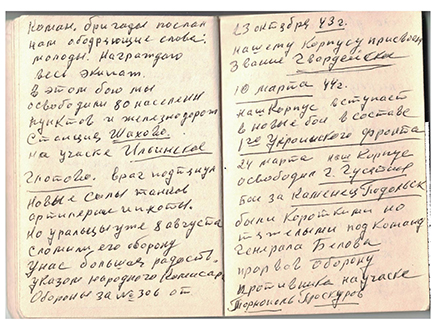 Коман. бригады послал
нам ободряющие слова:
молодцы. Награждаю
весь экипаж.
В этом бою мы
освободили 80 населенн
пунктов и железнодорож
станцию Шахово.
на участке Ильинское
Глотово. враг подтянул
новые силы танков
артилерии и пихоты.
но уральцы уже 8 августа
сломили его оборону
У нас большая радость.
указом народного Комисар
Обороны за № 306 от
23 октября 43 г.
нашему Корпусу присвоен
Звание Гвардейское
10 марта 44 г.
наш Корпус вступает
в новые бои в составе
1го Украинского фронта
24 марта наш Корпус
освободил г. Гусятин
бои за Каменец Подольск
были Короткими но
тяжелыми под Команд
Генерала Белова
прорвав оборону
противника на участке
Тернополь Проскуров